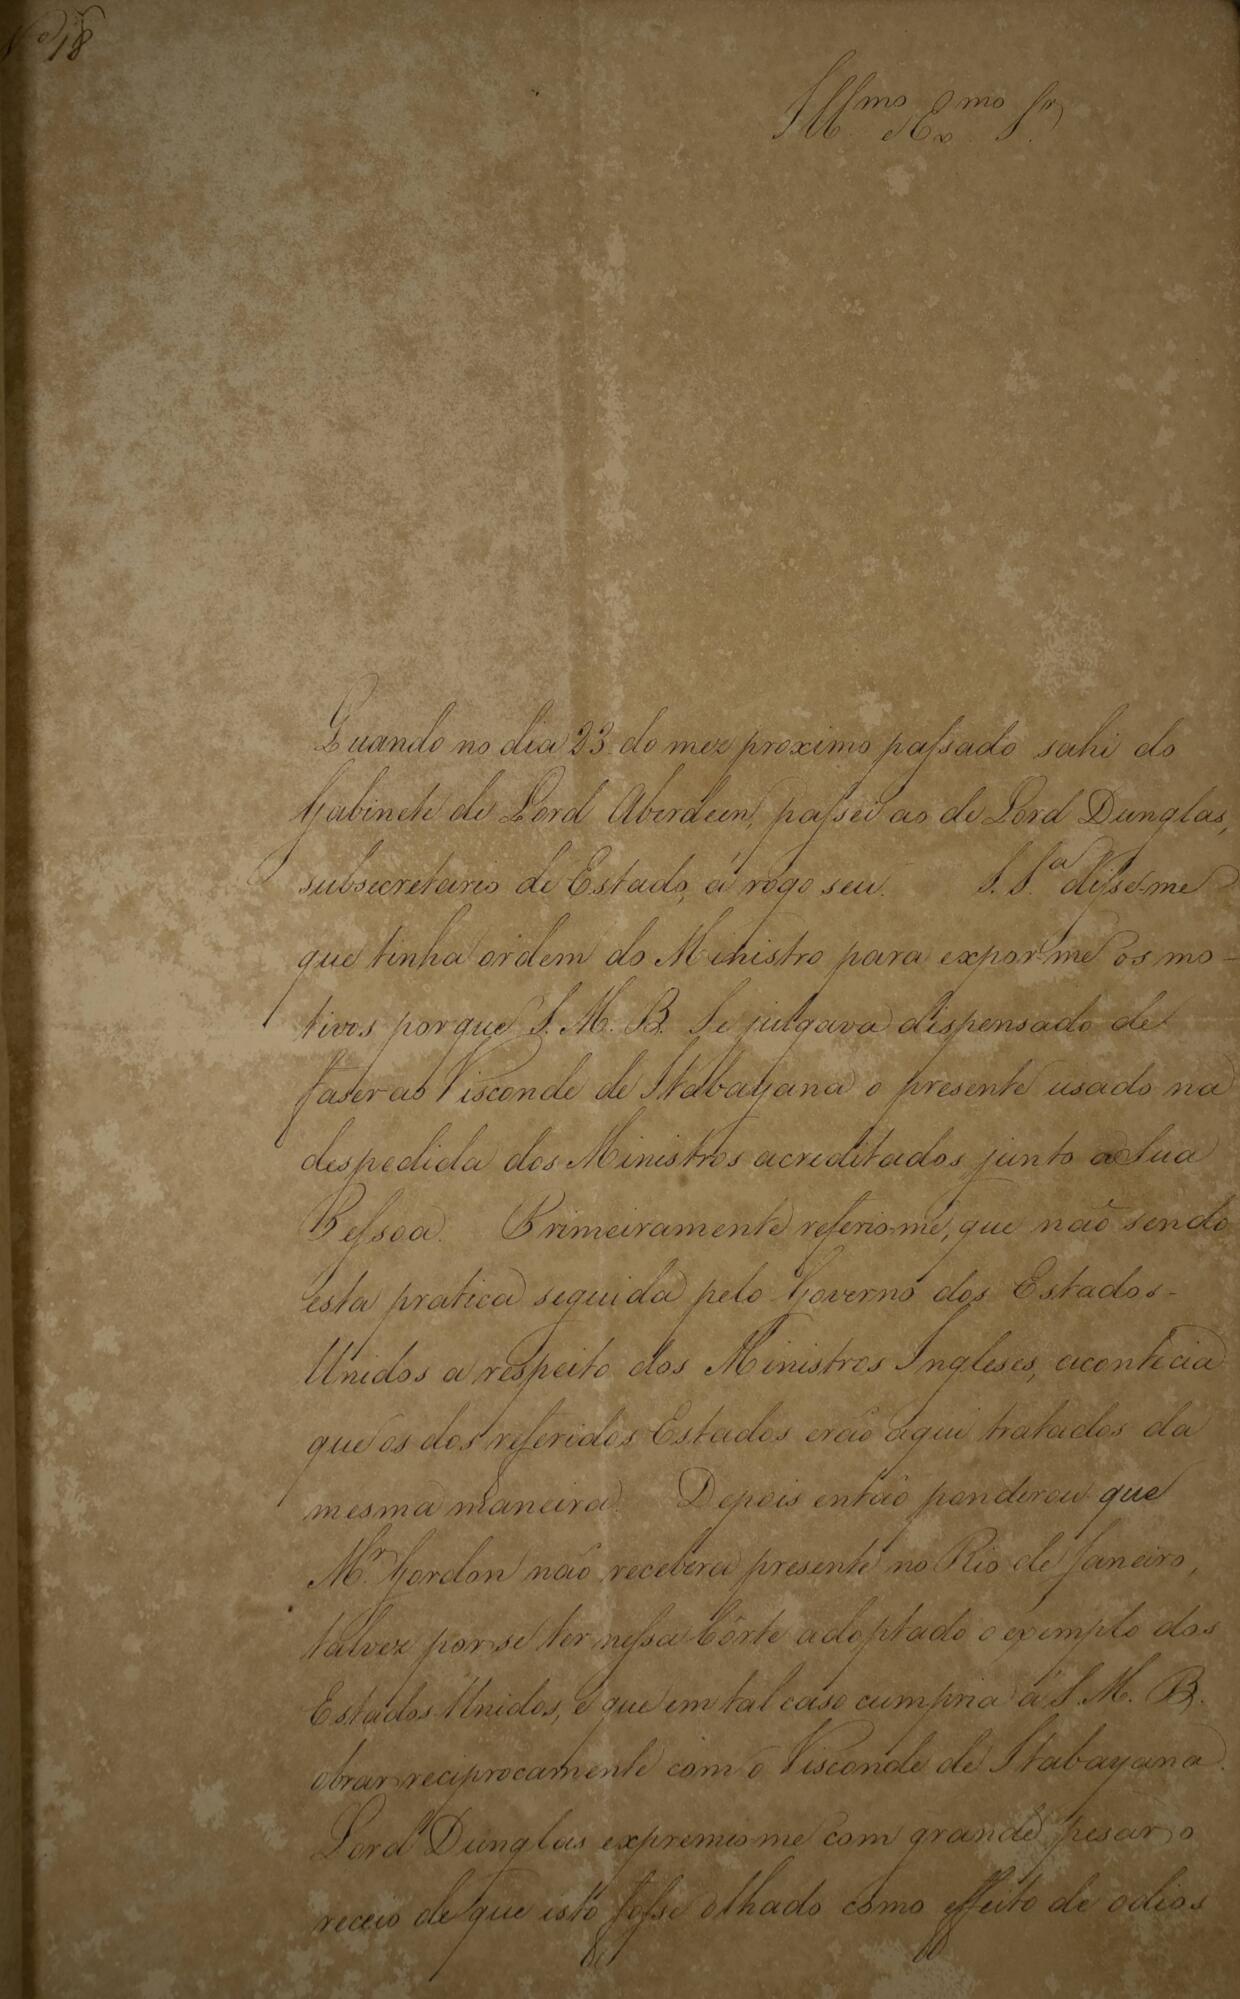 Nº 18
Illmo Exmo Sr
Quando no dia 23 do mez proximo passado sahi do
Gabinete de Lord Aberdeen, passei ao de Lord Dunglas,
subsecretario de Estado, á rôgo seu. S. Sª disse-me
que tinha ordem do Ministro para expôr-me os mo-
tivos porque S. M. B. Se julgava dispensado de
faser ao Visconde de Itabayana o presente usado na
despedida dos Ministros acreditados junto a Sua
Pessoa. Primeiramente referio-me, que não sendo
esta pratica seguida pelo Governo dos Estados-
Unidos a respeito dos Ministros Ingleses, acontecia
que os dos referidos Estados erão aqui tratados da
mesma maneira. Depois então ponderou que
Mr. Gordon não recebera presente no Rio de Janeiro,
talvez por se ter nessa Côrte adoptado o exemplo dos
Estados-Unidos, e que em tal caso cumpria á S. M. B.
obrar reciprocamente com o Visconde de Itabayana.
Lord Dunglas expremio-me com grande pesar o
receio de que isto fosse olhado como effeito de odios